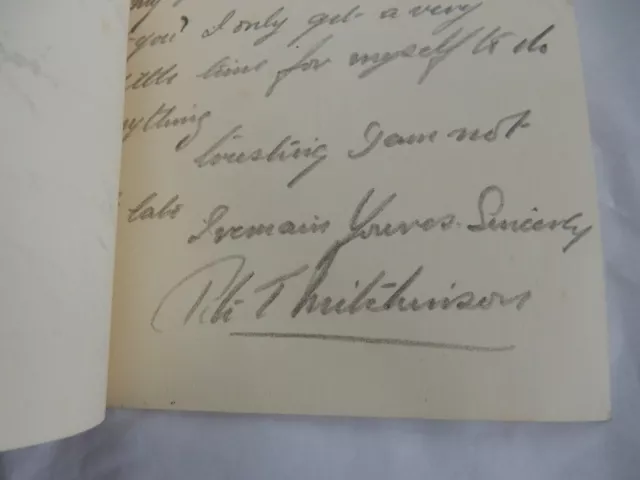 my
you? I only get a very
ttle time for myself to do
nything
trusting I am not
late
I remain Yours. Sincerly
Pte T Mitchinson